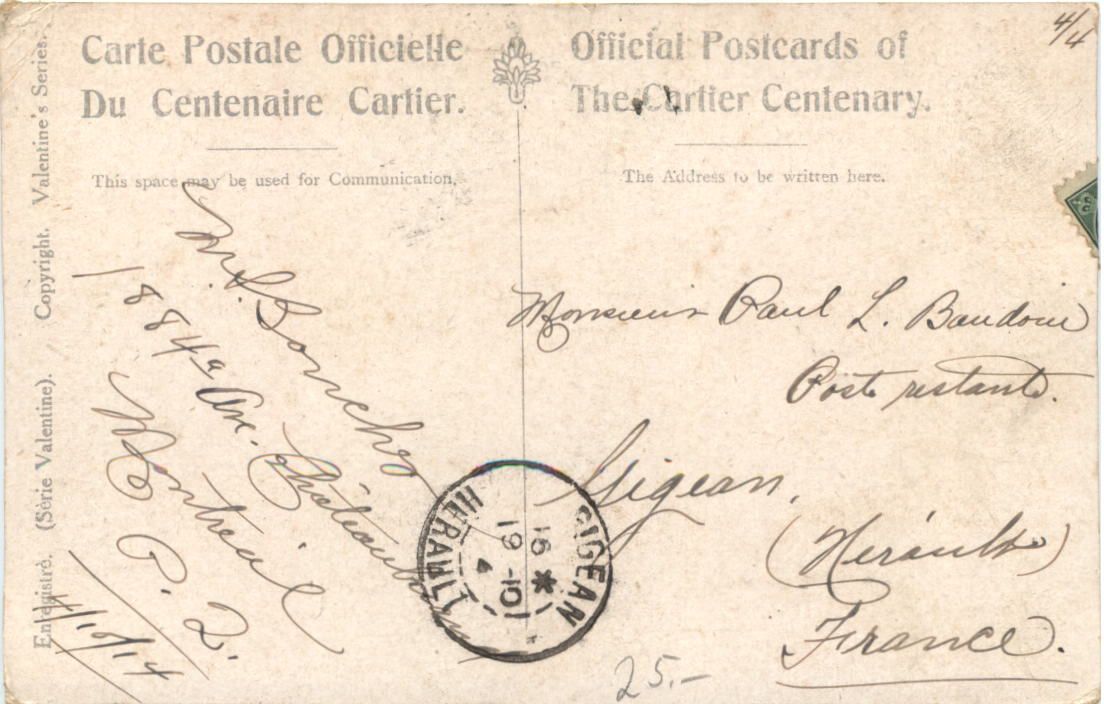 Carte Postale Officielle
Du Centenaire Cartier.
This space may be used for Communication.
Official Postcards of
The Cartier Centenary.
The Address to be written here.
4/4
Enregistré. (Série Valentine). Copyright. Valentine's Series.
1884a Ave. Chateaubriand
Montreal
P. 2.
4/10/14
Monsieur Paul L. Baudouin
Poste restante.
Gigean,
(Hérault)
France.
GIGEAN
16 * 
19 -10
4
HERAULT
25.-